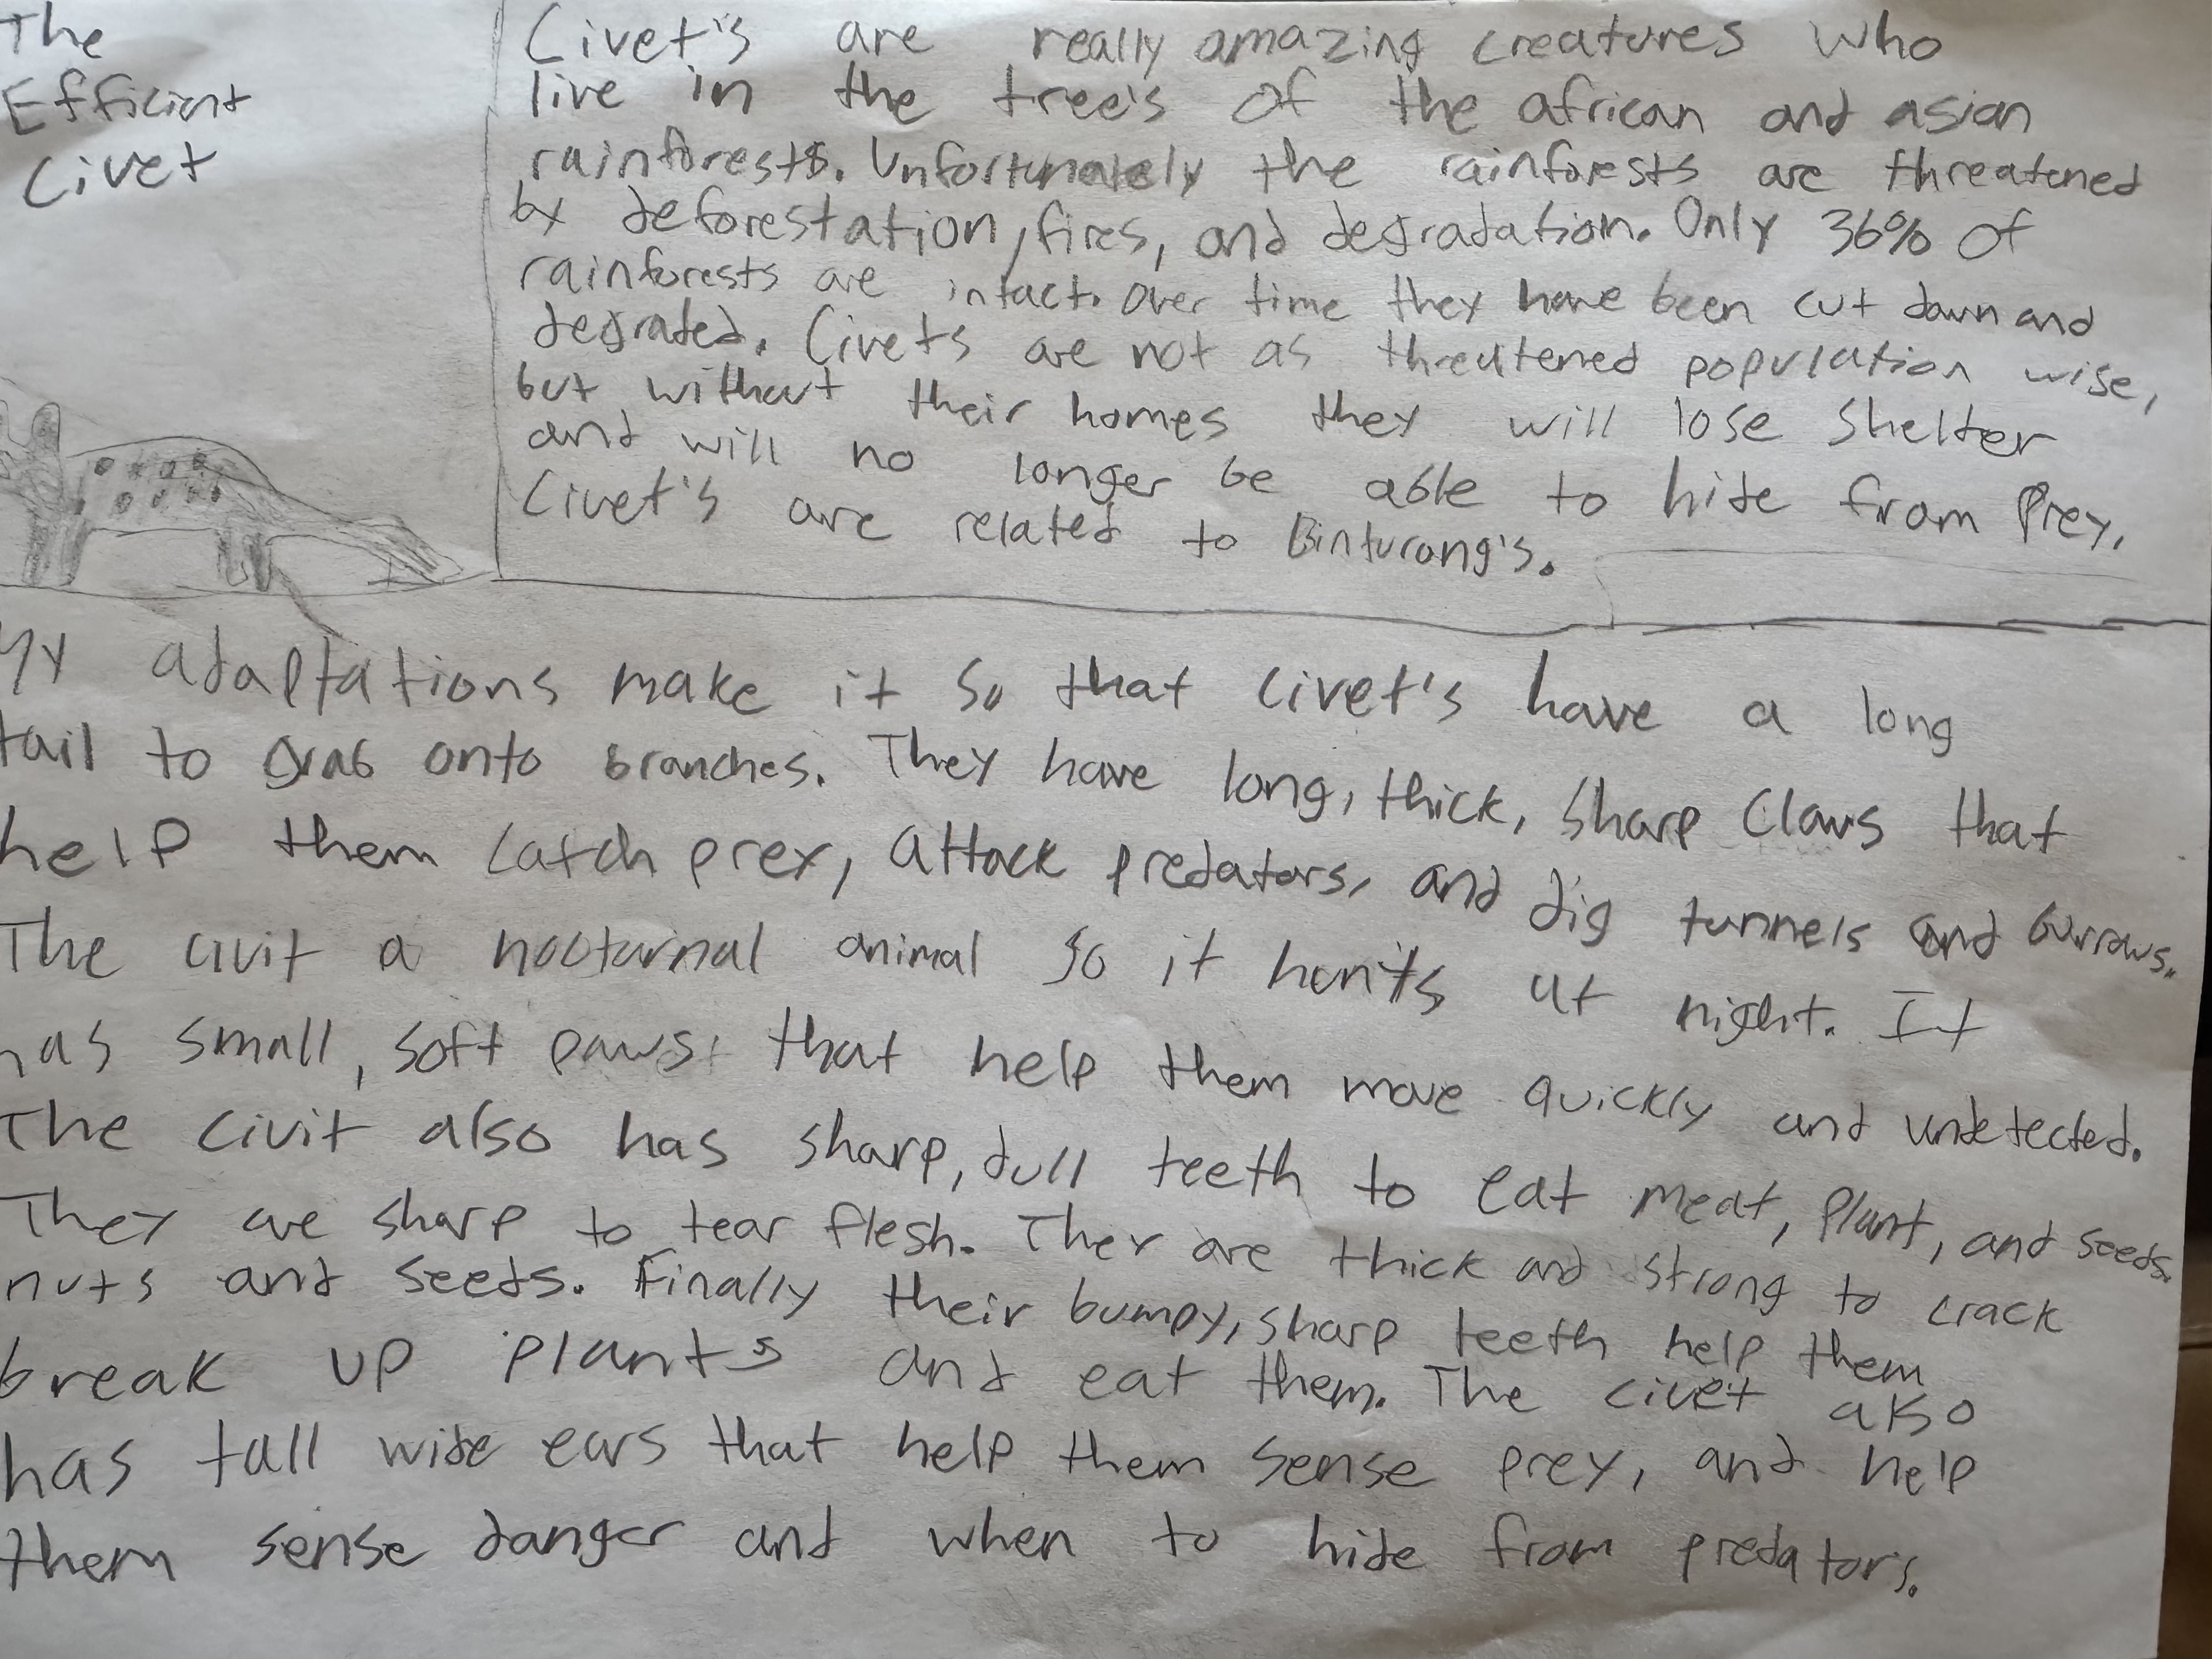 The
Efficient
Civet
Civet's are really amazing creatures who
live in the tree's of the african and asian
rainforests. Unfortunately the rainforests are threatened
by deforestation, fires, and degradation. Only 36% of
rainforests are intact. Over time they have been cut down and
degrated. Civets are not as threatened population wise,
but without their homes they will lose shelter
and will no longer be able to hide from prey.
Civet's are related to Binturong's.
My adaptations make it so that civet's have a long
tail to grab onto branches. They have long, thick, sharp claws that
help them catch prey, attack predators, and dig tunnels and burrows.
The civit a nocturnal animal so it hunts at night. It
has small, soft paws that help them move quickly and undetected.
The civit also has sharp, dull teeth to eat meat, plant, and seeds.
They are sharp to tear flesh. They are thick and strong to crack
nuts and seeds. Finally their bumpy, sharp teeth help them
break up plants and eat them. The civet also
has tall wide ears that help them sense prey, and help
them sense danger and when to hide from predator's.